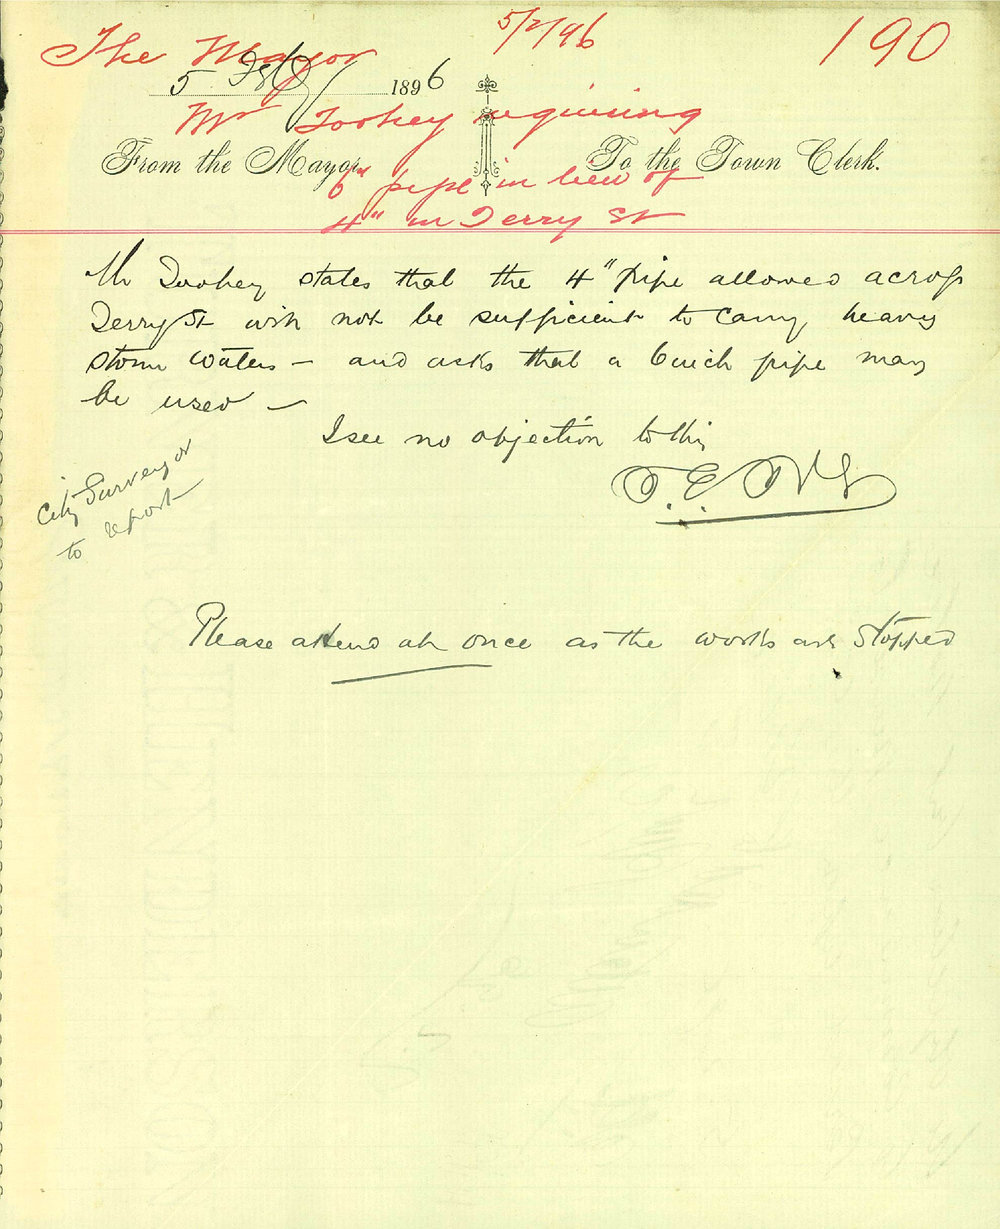 The Mayor
5/2/96
190
5 Feby 1896
Mr Toohey requiring
From the Mayor
To the Town Clerk.
6" pipe in lieu of
4" in Terry St
Mr Toohey states that the 4" pipe allowed across
Terry St will not be sufficient to carry heavy
storm waters – and asks that a 6 inch pipe may
be used –
I see no objection to this
City Surveyor
to report
Please attend at once as the works are stopped